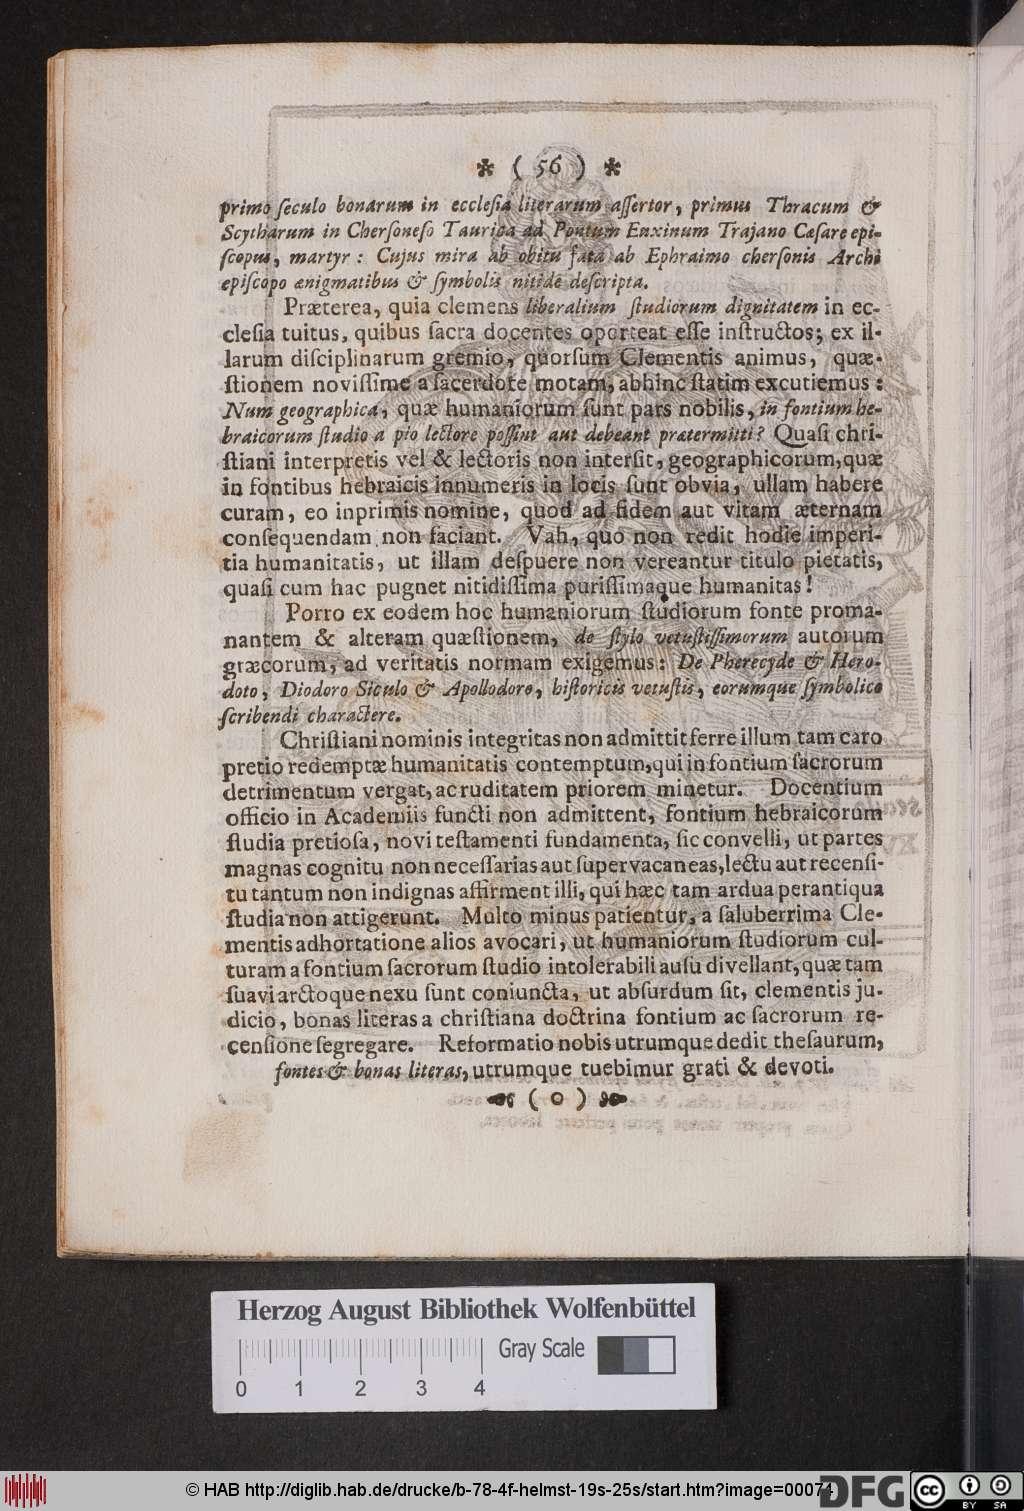 * ( 56 ) *
primo ſeculo bonarum in eccleſia literarum aſſertor, primus Thracum &
Scytharum in Cherſoneſo Taurica ad Pontum Euxinum Trajano Cæſare epi-
ſcopus, martyr : Cujus mira ab obitu fata ab Ephraimo cherſonis Archi
epiſcopo ænigmatibus & ſymbolis nitide deſcripta.
Præterea, quia clemens liberalium ſtudiorum dignitatem in ec-
cleſia tuitus, quibus ſacra docentes oporteat eſſe inſtructos; ex il-
larum diſciplinarum gremio, quorſum Clementis animus, quæ-
ſtionem noviſſime a ſacerdote motam, abhinc ſtatim excutiemus :
Num geographica, quæ humaniorum ſunt pars nobilis, in fontium he-
braicorum ſtudio a pio lectore poſſint aut debeant prætermitti? Quaſi chri-
ſtiani interpretis vel & lectoris non interſit, geographicorum, quæ
in fontibus hebraicis innumeris in locis ſunt obvia, ullam habere
curam, eo inprimis nomine, quod ad fidem aut vitam æternam
conſequendam non faciant. Vah, quo non redit hodie imperi-
tia humanitatis, ut illam deſpuere non vereantur titulo pietatis,
quaſi cum hac pugnet nitidiſſima puriſſimaque humanitas!
Porro ex eodem hoc humaniorum ſtudiorum fonte proma-
nantem & alteram quæſtionem, de ſtylo vetuſtiſſimorum autorum
græcorum, ad veritatis normam exigemus: De Pherecyde & Hero-
doto, Diodoro Siculo & Apollodoro, hiſtoricis vetuſtis, eorumque ſymbolico
ſcribendi charactere.
Chriſtiani nominis integritas non admittit ferre illum tam caro
pretio redemptæ humanitatis contemptum, qui in fontium ſacrorum
detrimentum vergat, ac ruditatem priorem minetur. Docentium
officio in Academiis functi non admittent, fontium hebraicorum
ſtudia pretioſa, novi teſtamenti fundamenta, ſic convelli, ut partes
magnas cognitu non neceſſarias aut ſupervacaneas, lectu aut recenſi-
tu tantum non indignas affirment illi, qui hæc tam ardua perantiqua
ſtudia non attigerunt. Multo minus patientur, a ſaluberrima Cle-
mentis adhortatione alios avocari, ut humaniorum ſtudiorum cul-
turam a fontium ſacrorum ſtudio intolerabili auſu divellant, quæ tam
ſuavi arctoque nexu ſunt coniuncta, ut abſurdum ſit, clementis ju-
dicio, bonas literas a chriſtiana doctrina fontium ac ſacrorum re-
cenſione ſegregare. Reformatio nobis utrumque dedit theſaurum,
fontes & bonas literas, utrumque tuebimur grati & devoti.
( o )
Herzog August Bibliothek Wolfenbüttel
Gray Scale
0 1 2 3 4
© HAB http://diglib.hab.de/drucke/b-78-4f-helmst-19s-25s/start.htm?image=00074
DFG
cc BY SA